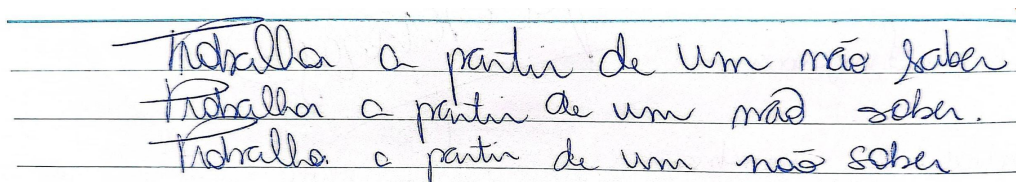 Trabalhar a partir de um não saber
Trabalhar a partir de um não saber.
Trabalhar a partir de um não saber